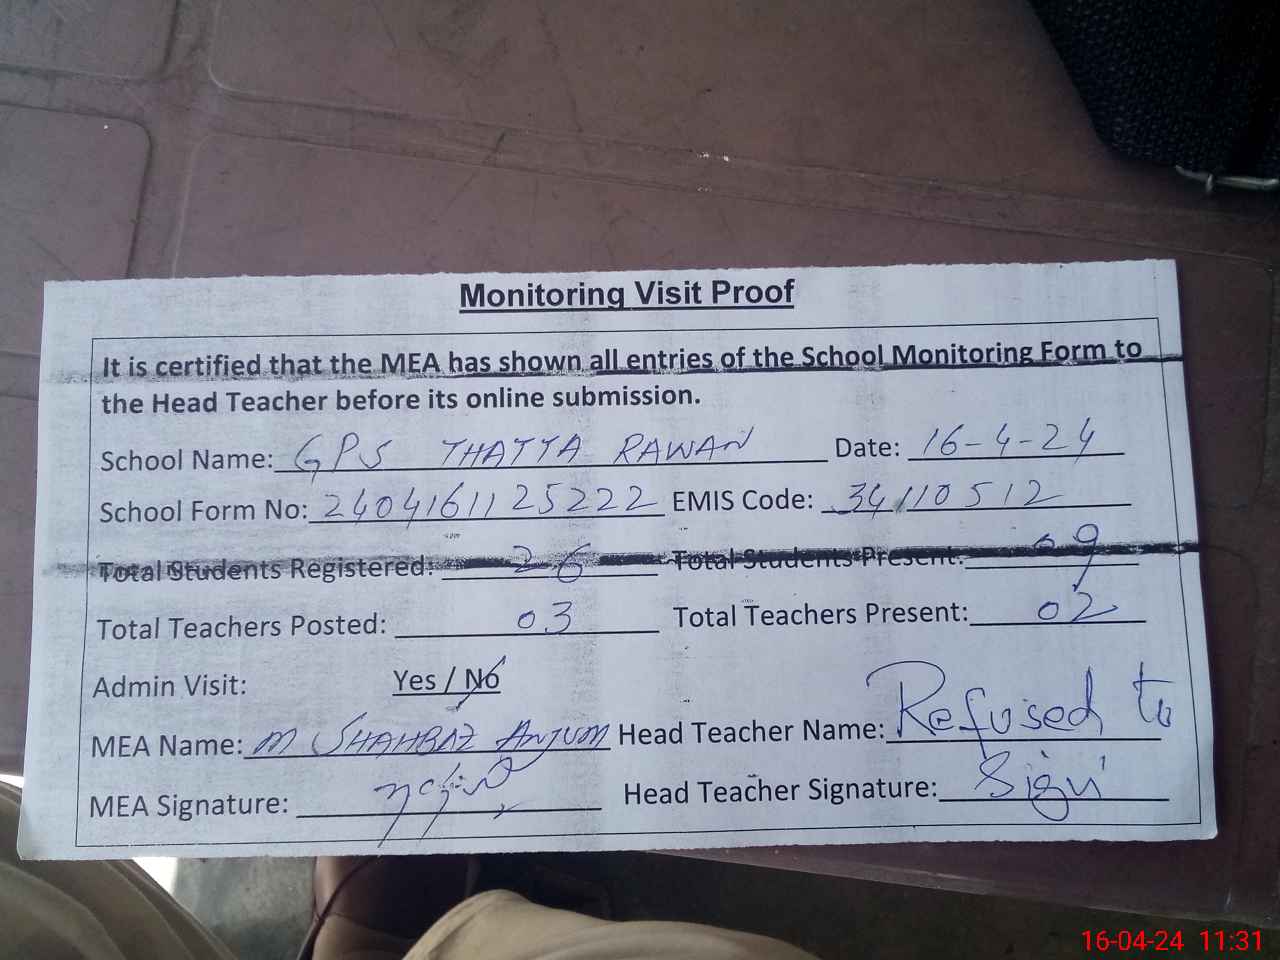 Monitoring Visit Proof
It is certified that the MEA has shown all entries of the School Monitoring Form to
the Head Teacher before its online submission.
School Name: GPS THATTA RAWAN Date: 16-4-24
School Form No: 2404161125222 EMIS Code: 34110512
Total Students Registered: 26 Total Students Present: 09
Total Teachers Posted: 03 Total Teachers Present: 02
Admin Visit: Yes / No
MEA Name: M SHAHBAZ ANJUM Head Teacher Name: Refused to
MEA Signature: Head Teacher Signature: Sign
16-04-24 11:31